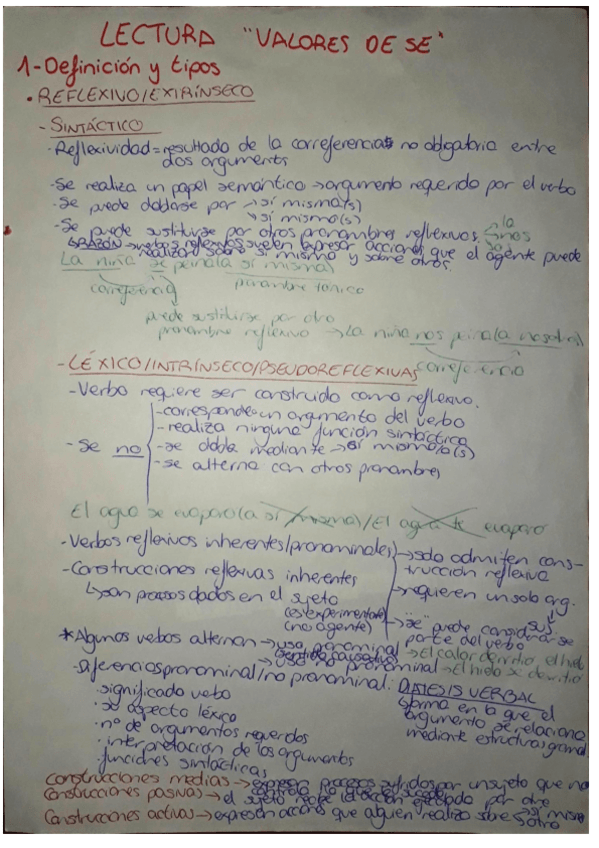 LECTURA "VALORES DE SE"
1-Definición y tipos
• REFLEXIVO/EXTRÍNSECO
- SINTÁCTICO
· Reflexividad = resultado de la correferencia no obligatoria entre
dos arguments
-Se realiza un papel semántico → argumento requerido por el verbo
-Se puede doblarse por → sí misma(s)
↳ sí mismo(s)
-Se puede sustituirse por otros pronombres reflexivos.
la
nos
↳RAZÓN → verbos reflexivos suelen expresar acciones que el agente puede
realizar sobre sí mismo y sobre otros.
La niña se peina(a sí misma)
correferencia pronombre tónico
puede sustituirse por otro
pronombre reflexivo → La niña nos peina(a nosotros)
correferencia
- LÉXICO/INTRÍNSECO/PSEUDOREFLEXIVAS
-Verbo requiere ser construido como reflexivo.
-corresponde un argumento del verbo
-realiza ninguna función sintáctica
- Se no -se dobla mediante → sí mismo/a(s)
-se alterna con otros pronombres
El agua se evaporó(a sí misma)/El agua te evaporó
-Verbos reflexivos inherentes(pronominales) → solo admiten cons-
trucción reflexiva
-Construcciones reflexivas inherentes → requieren un solo arg.
↳son procesos dados en el sujeto
(es experimentante)
(no agente)
→ "se" puede considerarse
parte del verbo
*Algunos verbos alternan → uso pronominal
sentido causativo → El calor derritió el hielo
uso no pronominal → El hielo se derritió
-Diferencias pronominal/no pronominal:
·significado verbo
·su aspecto léxico
·nº de argumentos requeridos
·interpretación de los argumentos
·funciones sintácticas
DIÁTESIS VERBAL
forma en la que el
argumento se relaciona
mediante estructuras gramat
Construcciones medias → expresan procesos sufridos por un sujeto que no
Construcciones pasivas → el sujeto recibe la acción ejecutada por otro
Construcciones activas → expresan acciones que alguien realiza sobre → sí mismo
otro